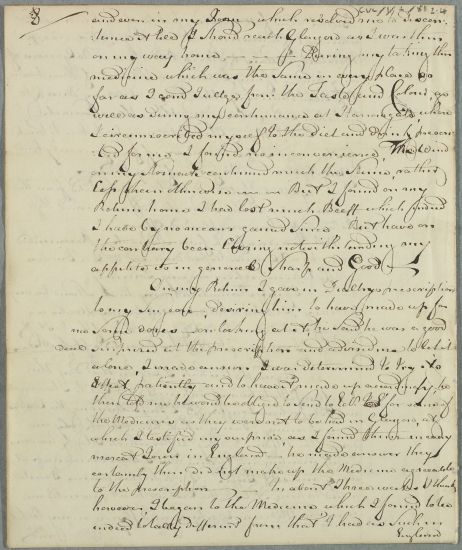 and even in my Room, which resolved me to discon-
tinue it till I should reach Glasgow as I was then
on my way home. During my taking this
medicine which was the same in every place so
far as I could judge from the Taste and Colour, as
well as during my continuance at Harrowgate where
I circumscribed myself to the Diet and Drink prescri-
bed for me I found no inconvenience, the Wind
on my Stomach continued much the same, rather
less than otherwise But I found on my
Return home I had lost much Beeff which indeed
I have by no means gained since But have on
the contrary been losing notwithstanding my
appetite is in general Sharp and Good
On my Return I gave in prescription
to my Surgeon, desiring him to have made up for
me some doses on looking at it, he said he was a good
deal surprised at the prescription and advised me to let it
alone, I made answer I was determined to try it
patiently and to have it made up accordingly, he
then told me he would be obliged to send to for some of
the Medicines as they were not to be had in Glasgow, at
which I testified my surprise, as I found them in every
Town in England, he made answer they
certainly then did not make up the Medicine agreeable
to the prescription In about three weeks
however, I began to the Medicine which I found to be
indeed totally different from that I had as such in
England